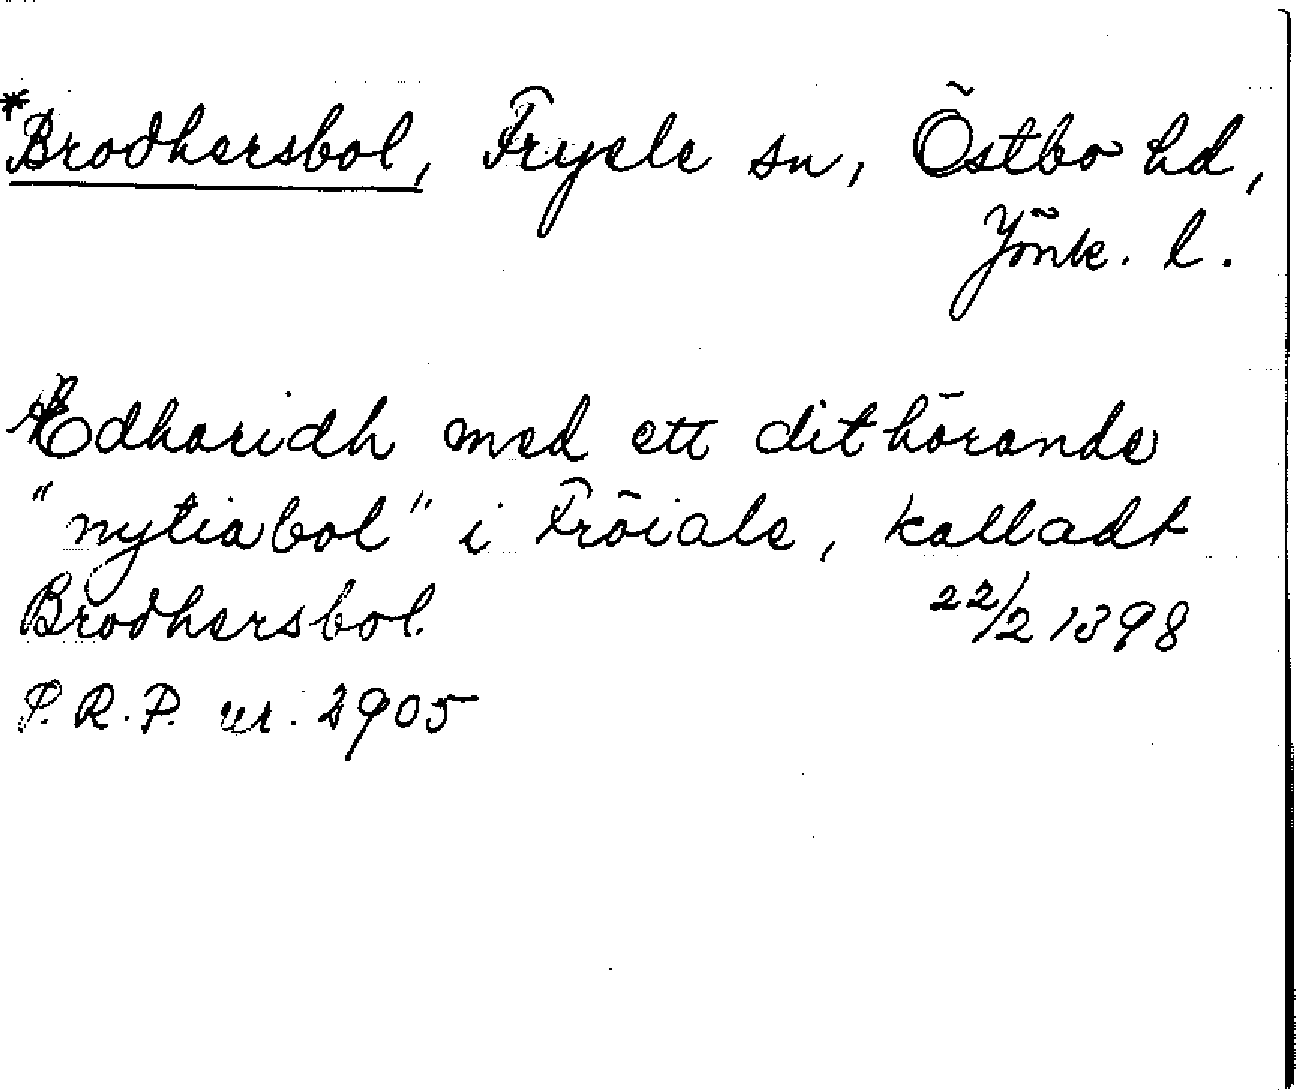 *Brodhersbol, Fryele sn, Östbo hd,
Jönk. l.
*Edharidh med ett dithörande
"nytiabol" i Fröiale, kalladt
Brodhersbol. 22/2 1398
P.R.P. nr. 2905